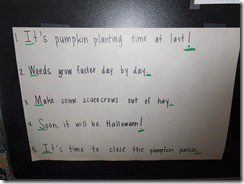 1. It's pumpkin planting time at last!
2. Weeds grow faster day by day.
3. Make some scarecrows out of hay.
4. Soon, it will be Halloween!
5. It's time to close the pumpkin patch.